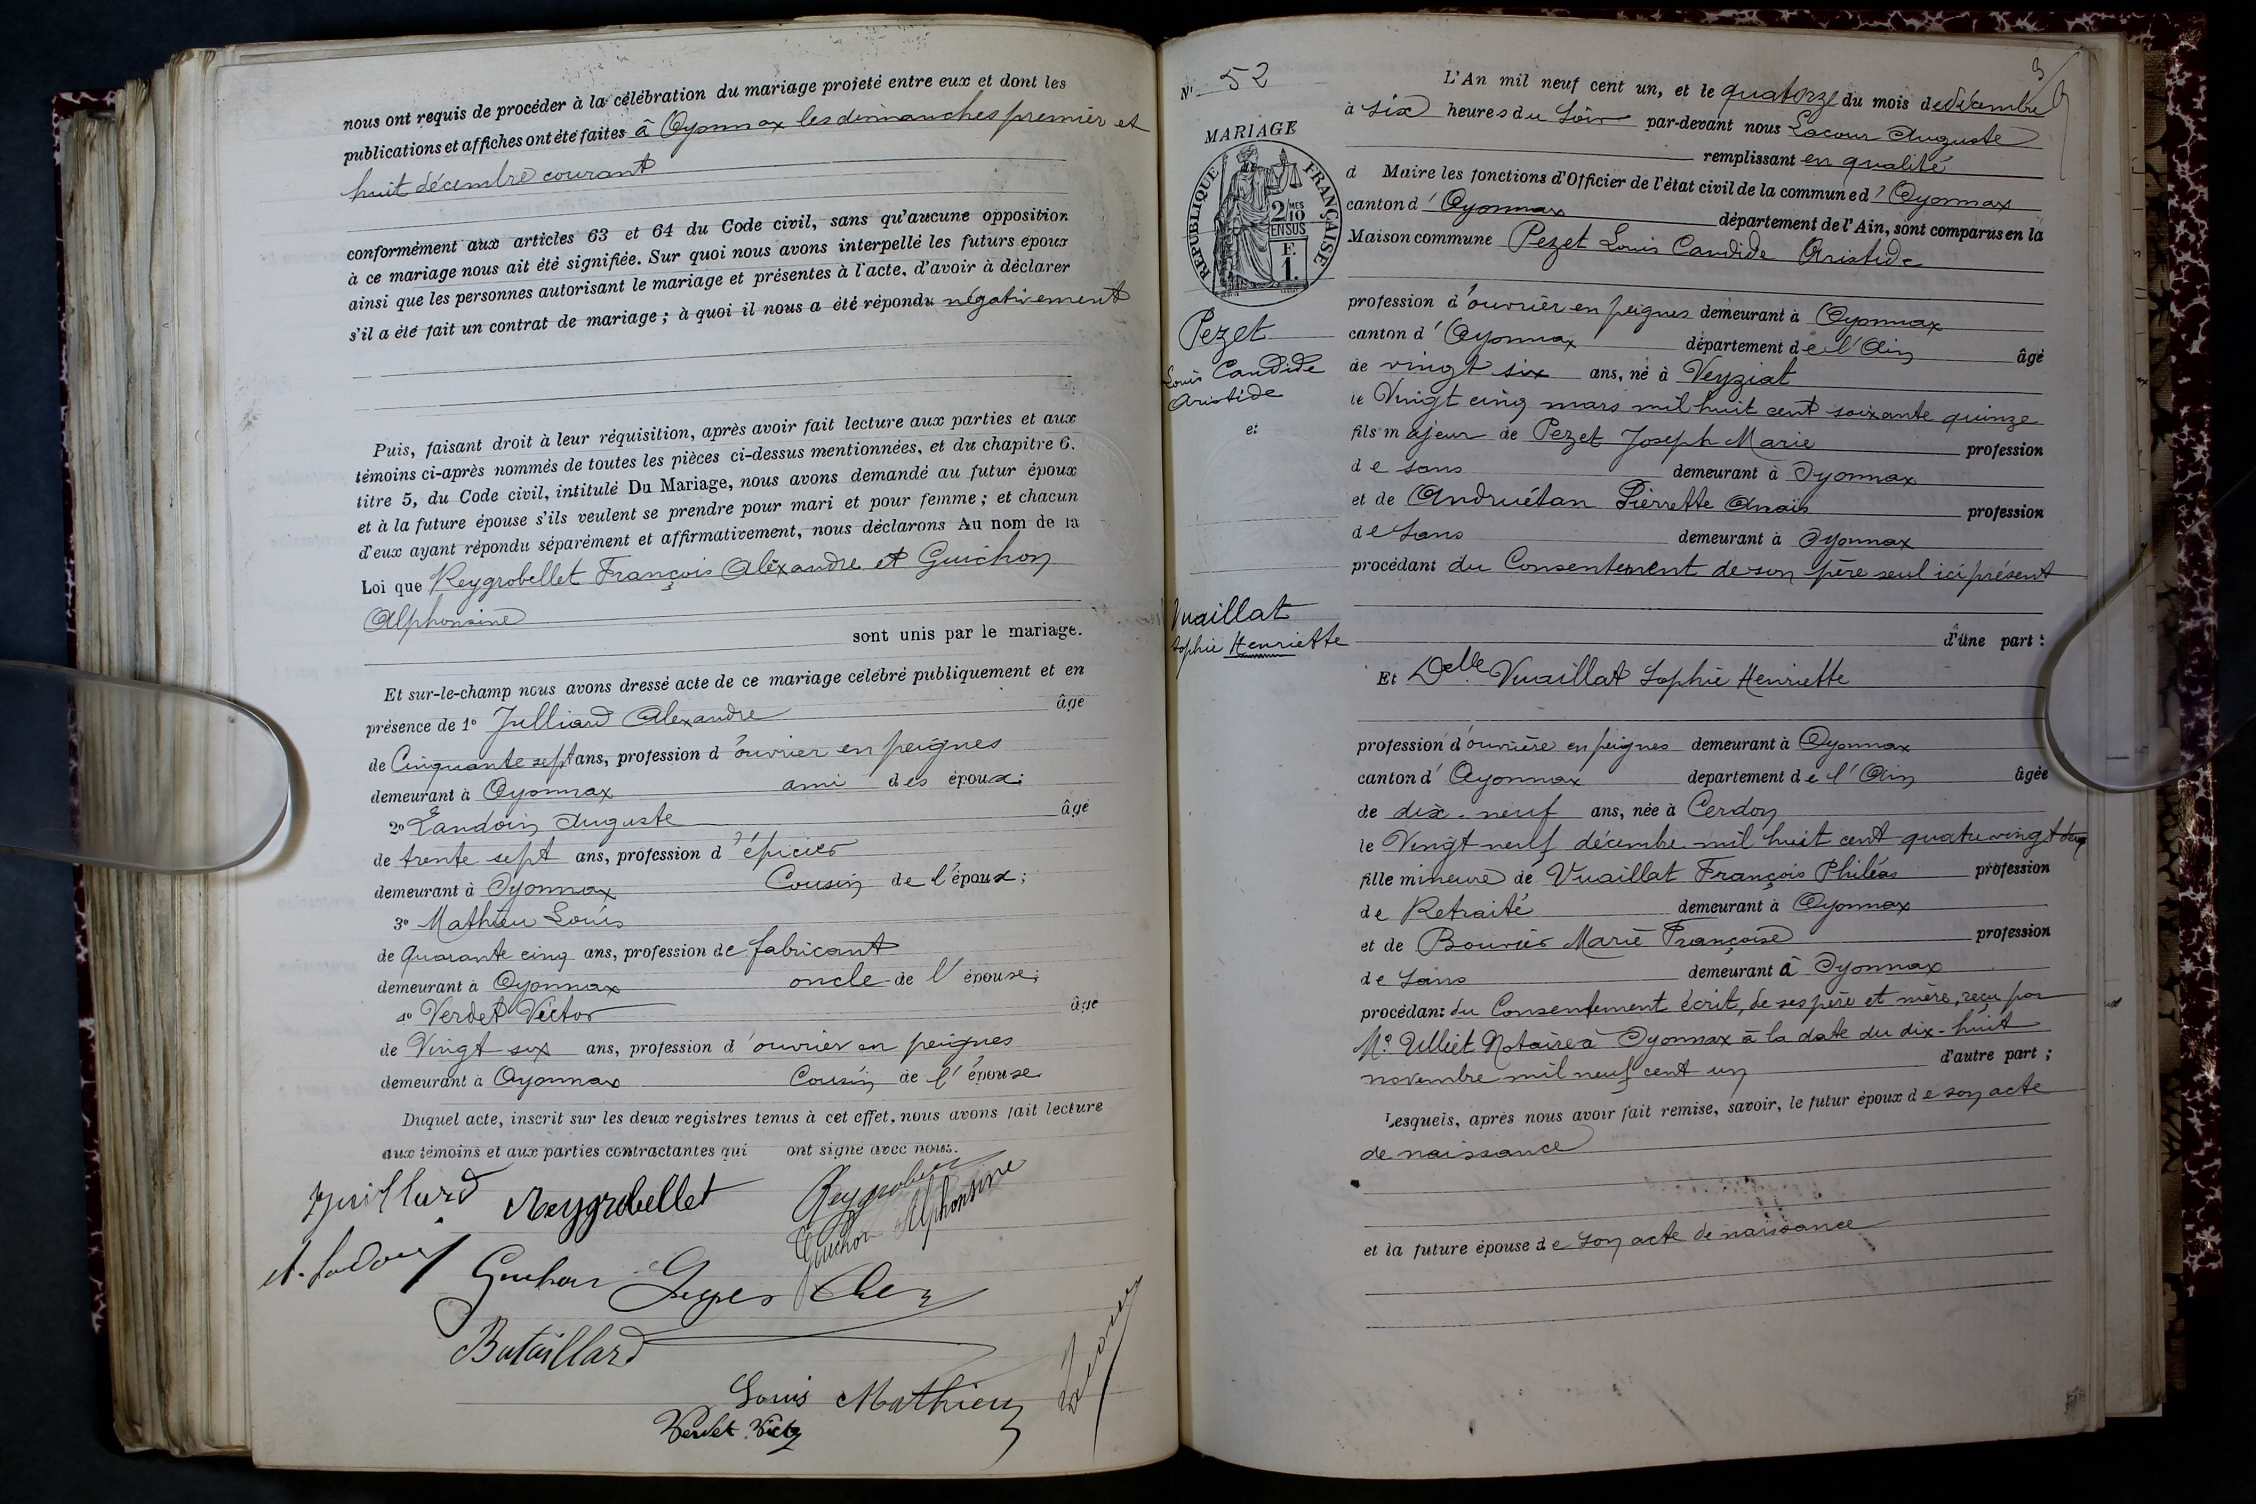 nous ont requis de procéder à la célébration du mariage projeté entre eux et dont les
publications et affiches ont été faites à Oyonnax les dimanches premier et
huit décembre courant
conformément aux articles 63 et 64 du Code civil, sans qu'aucune opposition
à ce mariage nous ait été signifiée. Sur quoi nous avons interpellé les futurs époux
ainsi que les personnes autorisant le mariage et présentes à l'acte, d'avoir à déclarer
s'il a été fait un contrat de mariage ; à quoi il nous a été répondu négativement
Puis, faisant droit à leur réquisition, après avoir fait lecture aux parties et aux
témoins ci-après nommés de toutes les pièces ci-dessus mentionnées, et du chapitre 6.
titre 5, du Code civil, intitulé Du Mariage, nous avons demandé au futur époux
et à la future épouse s'ils veulent se prendre pour mari et pour femme ; et chacun
d'eux ayant répondu séparément et affirmativement, nous déclarons Au nom de la
Loi que Reygrobellet François Alexandre et Guichon
Alphonsine
sont unis par le mariage.
Et sur-le-champ nous avons dressé acte de ce mariage célébré publiquement et en
présence de 1º Julliard Alexandre âgé
de Cinquante sept ans, profession d'ouvrier en peignes
demeurant à Oyonnax ami des époux;
2º Landoin Auguste âgé
de trente sept ans, profession d'épicier
demeurant à Oyonnax Cousin de l'époux;
3º Mathieu Louis
de quarante cinq ans, profession de fabricant
demeurant à Oyonnax oncle de l'épouse;
4º Verdet Victor âgé
de Vingt six ans, profession d'ouvrier en peignes
demeurant à Oyonnax Cousin de l'épouse
Duquel acte, inscrit sur les deux registres tenus à cet effet, nous avons fait lecture
aux témoins et aux parties contractantes qui ont signé avec nous.
Reygrobellet
Guichon Alphonsine
Guichon
Bataillard
Louis Mathieu
Verdet Victor
Nº 52
MARIAGE
RÉPUBLIQUE FRANÇAISE
2 MES 10
EN SUS
F.
1.
Pezet
Louis Candide
Aristide
et
Vuaillat
Sophie Henriette
L'An mil neuf cent un, et le quatorze du mois de décembre
à six heures du Soir par-devant nous Lacour Auguste
remplissant en qualité
d Maire les fonctions d'Officier de l'état civil de la commune d'Oyonnax
canton d'Oyonnax département de l'Ain, sont comparus en la
Maison commune Pezet Louis Candide Aristide
profession d'ouvrier en peignes demeurant à Oyonnax
canton d'Oyonnax département de l'Ain âgé
de vingt six ans, né à Veyziat
le Vingt cinq mars mil huit cent soixante quinze
fils majeur de Pezet Joseph Marie profession
de sans demeurant à Oyonnax
et de Andruétan Pierrette Anaïs profession
de Sans demeurant à Oyonnax
procédant du Consentement de son père seul ici présent
d'une part :
Et Delle Vuaillat Sophie Henriette
profession d'ouvrière en peignes demeurant à Oyonnax
canton d'Oyonnax département de l'Ain âgée
de dix-neuf ans, née à Cerdon
le Vingt neuf décembre mil huit cent quatre vingt deux
fille mineure de Vuaillat François Philéas profession
de Retraité demeurant à Oyonnax
et de Bouvier Marie Françoise profession
de Sans demeurant à Oyonnax
procédant du Consentement écrit, de ses père et mère, reçu par
Me Ulliet Notaire à Oyonnax à la date du dix-huit
novembre mil neuf cent un d'autre part ;
Lesquels, après nous avoir fait remise, savoir, le futur époux de son acte
de naissance
et la future épouse de son acte de naissance